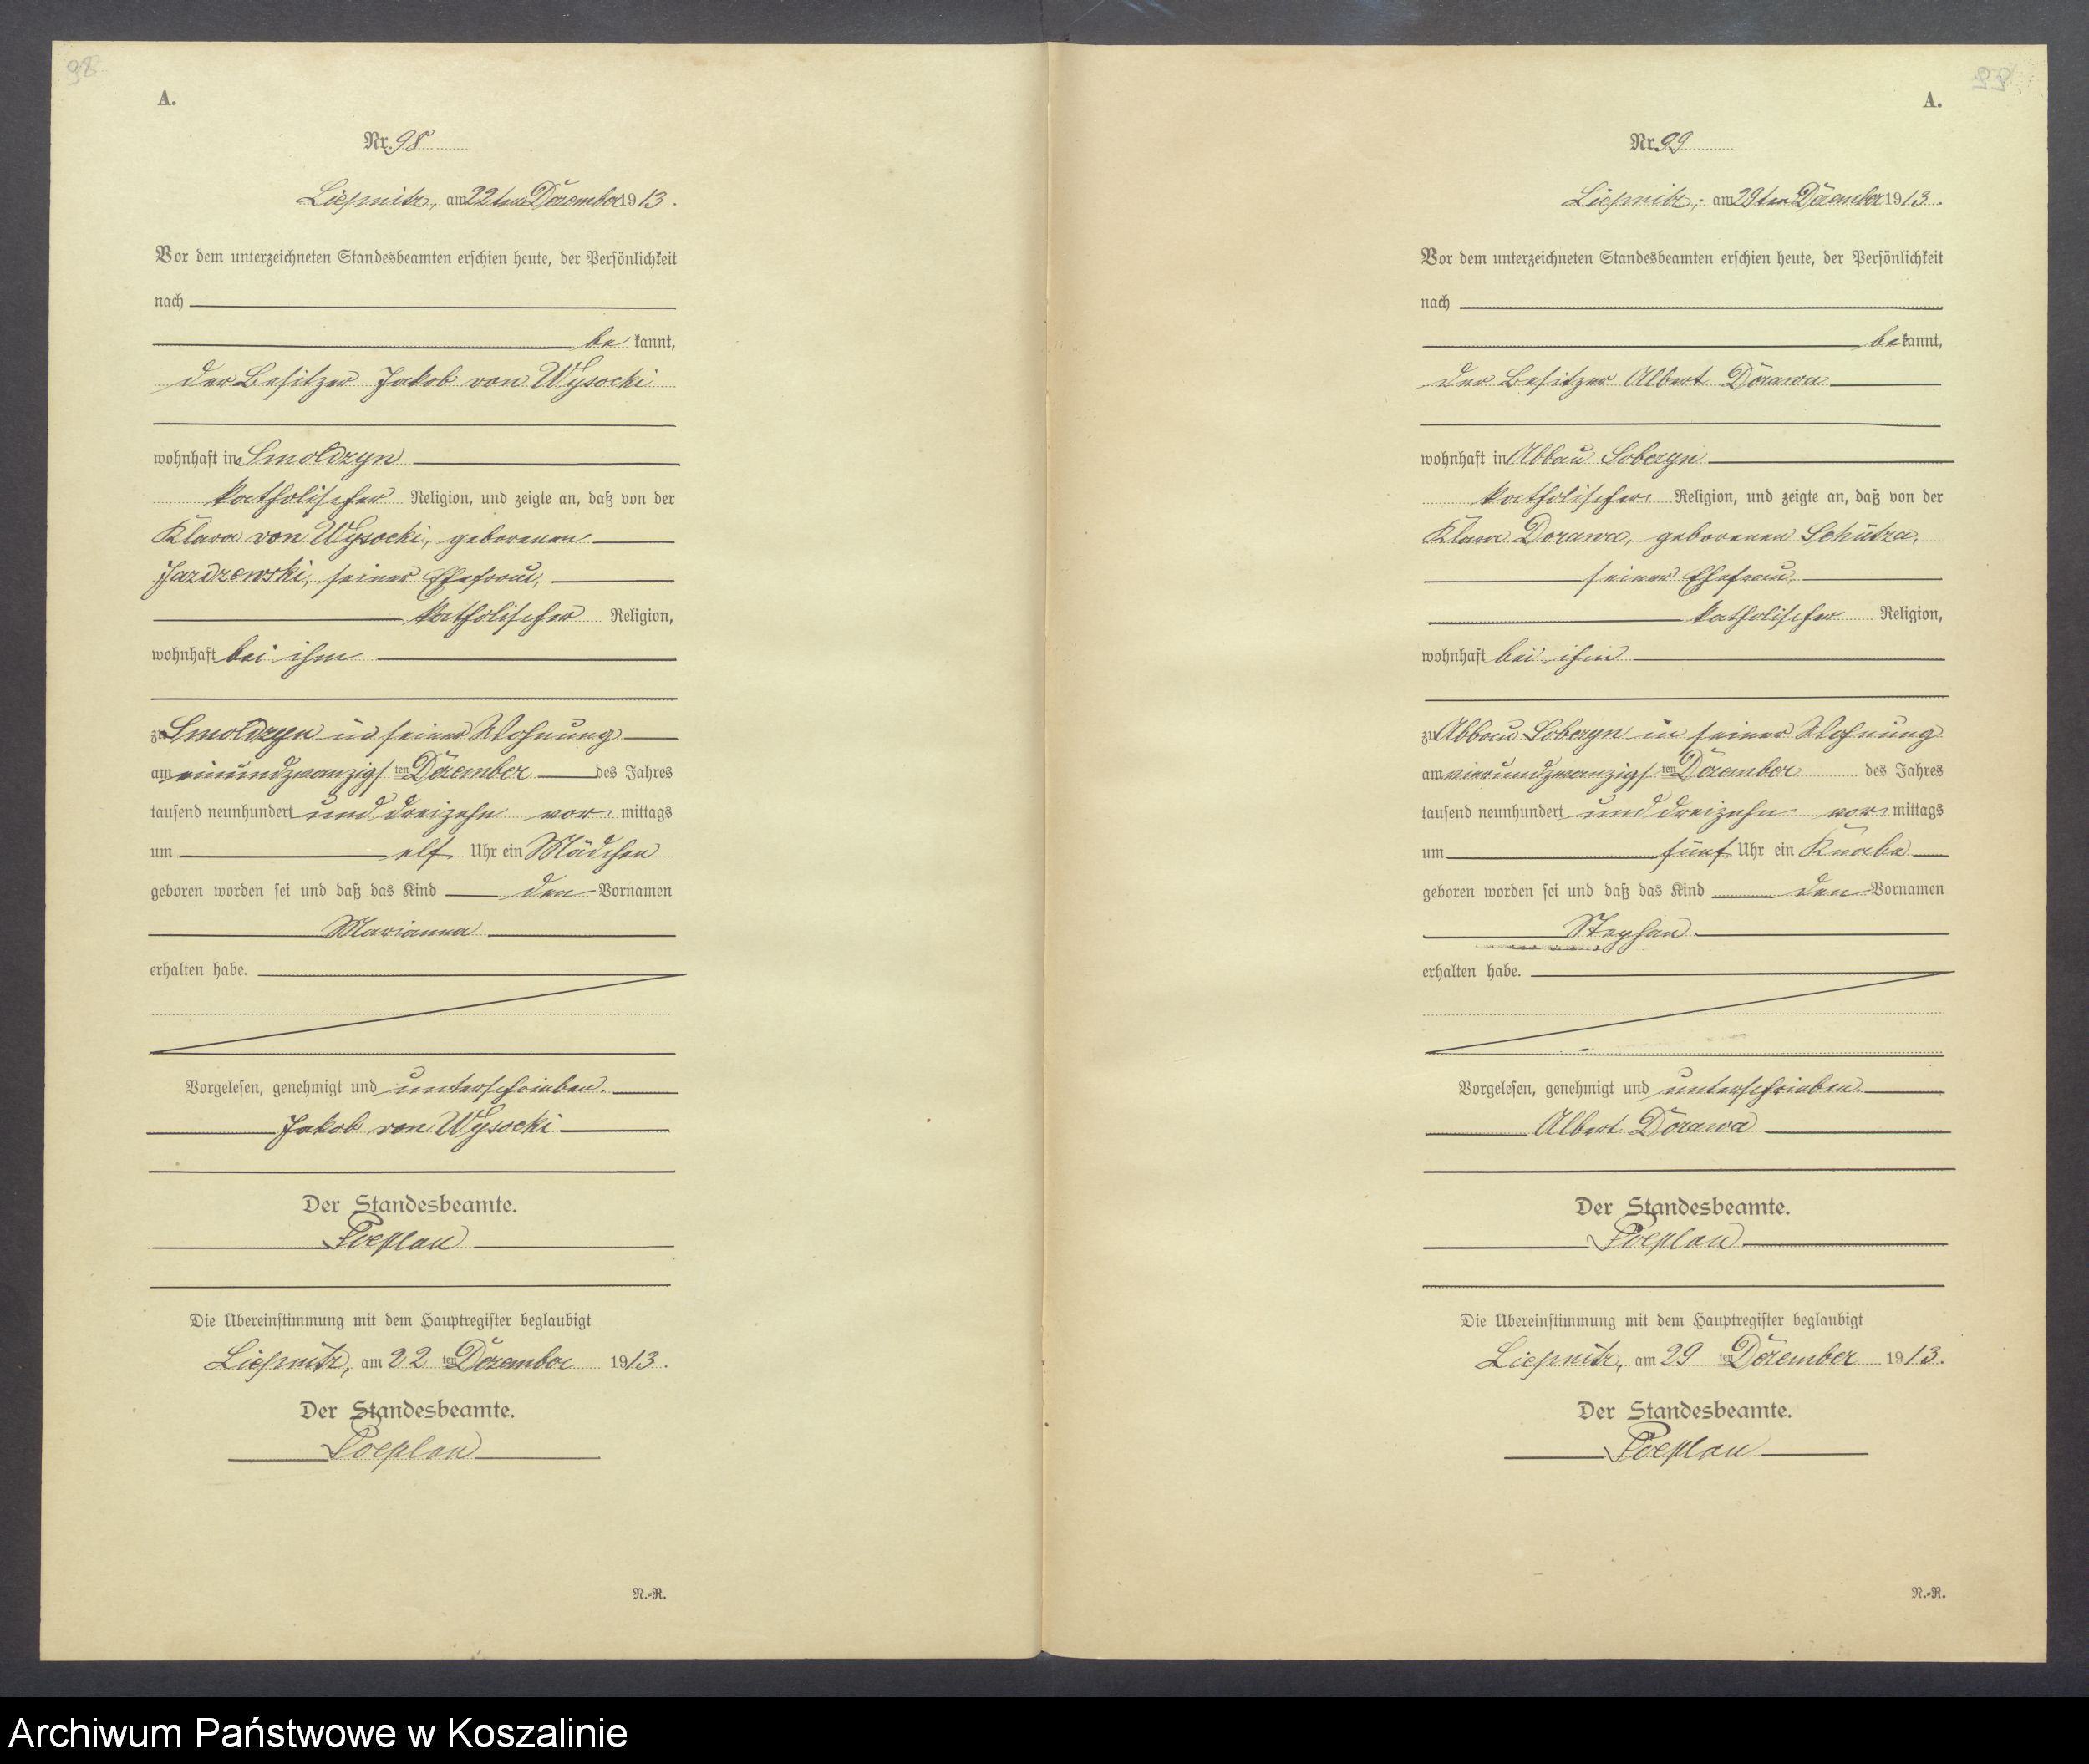 98
A.
Nr. 98
Liepnitz, am 22ten Dezember 1913.
Vor dem unterzeichneten Standesbeamten erschien heute, der Persönlichkeit
nach
be kannt,
der Besitzer Jakob von Wysocki
wohnhaft in Smoldzyn
katholischer Religion, und zeigte an, daß von der
Klara von Wysocki, geborenen
Jazdzewski, seiner Ehefrau,
katholischer Religion,
wohnhaft bei ihm
zu Smoldzyn in seiner Wohnung
am einundzwanzigsten Dezember des Jahres
tausend neunhundert und dreizehn vor mittags
um elf Uhr ein Mädchen
geboren worden sei und daß das Kind den Vornamen
Marianna
erhalten habe.
Vorgelesen, genehmigt und unterschrieben.
Jakob von Wysocki
Der Standesbeamte.
Poeplau
Die Übereinstimmung mit dem Hauptregister beglaubigt
Liepnitz, am 22 ten Dezember 1913.
Der Standesbeamte.
Poeplau
N.-R.
99
A.
Nr. 99
Liepnitz, am 29ten Dezember 1913.
Vor dem unterzeichneten Standesbeamten erschien heute, der Persönlichkeit
nach
bekannt,
der Besitzer Albert Dorawa
wohnhaft in Abbau
katholischer Religion, und zeigte an, daß von der
Klara Dorawa, geborenen Schütza,
seiner Ehefrau,
katholischer Religion,
wohnhaft bei ihm
zu Abbau in seiner Wohnung
am vierundzwanzigsten Dezember des Jahres
tausend neunhundert und dreizehn vor mittags
um fünf Uhr ein Knabe
geboren worden sei und daß das Kind den Vornamen
Stephan
erhalten habe.
Vorgelesen, genehmigt und unterschrieben.
Albert Dorawa
Der Standesbeamte.
Poeplau
Die Übereinstimmung mit dem Hauptregister beglaubigt
Liepnitz, am 29 ten Dezember 1913.
Der Standesbeamte.
Poeplau
N.-R.
Archiwum Państwowe w Koszalinie